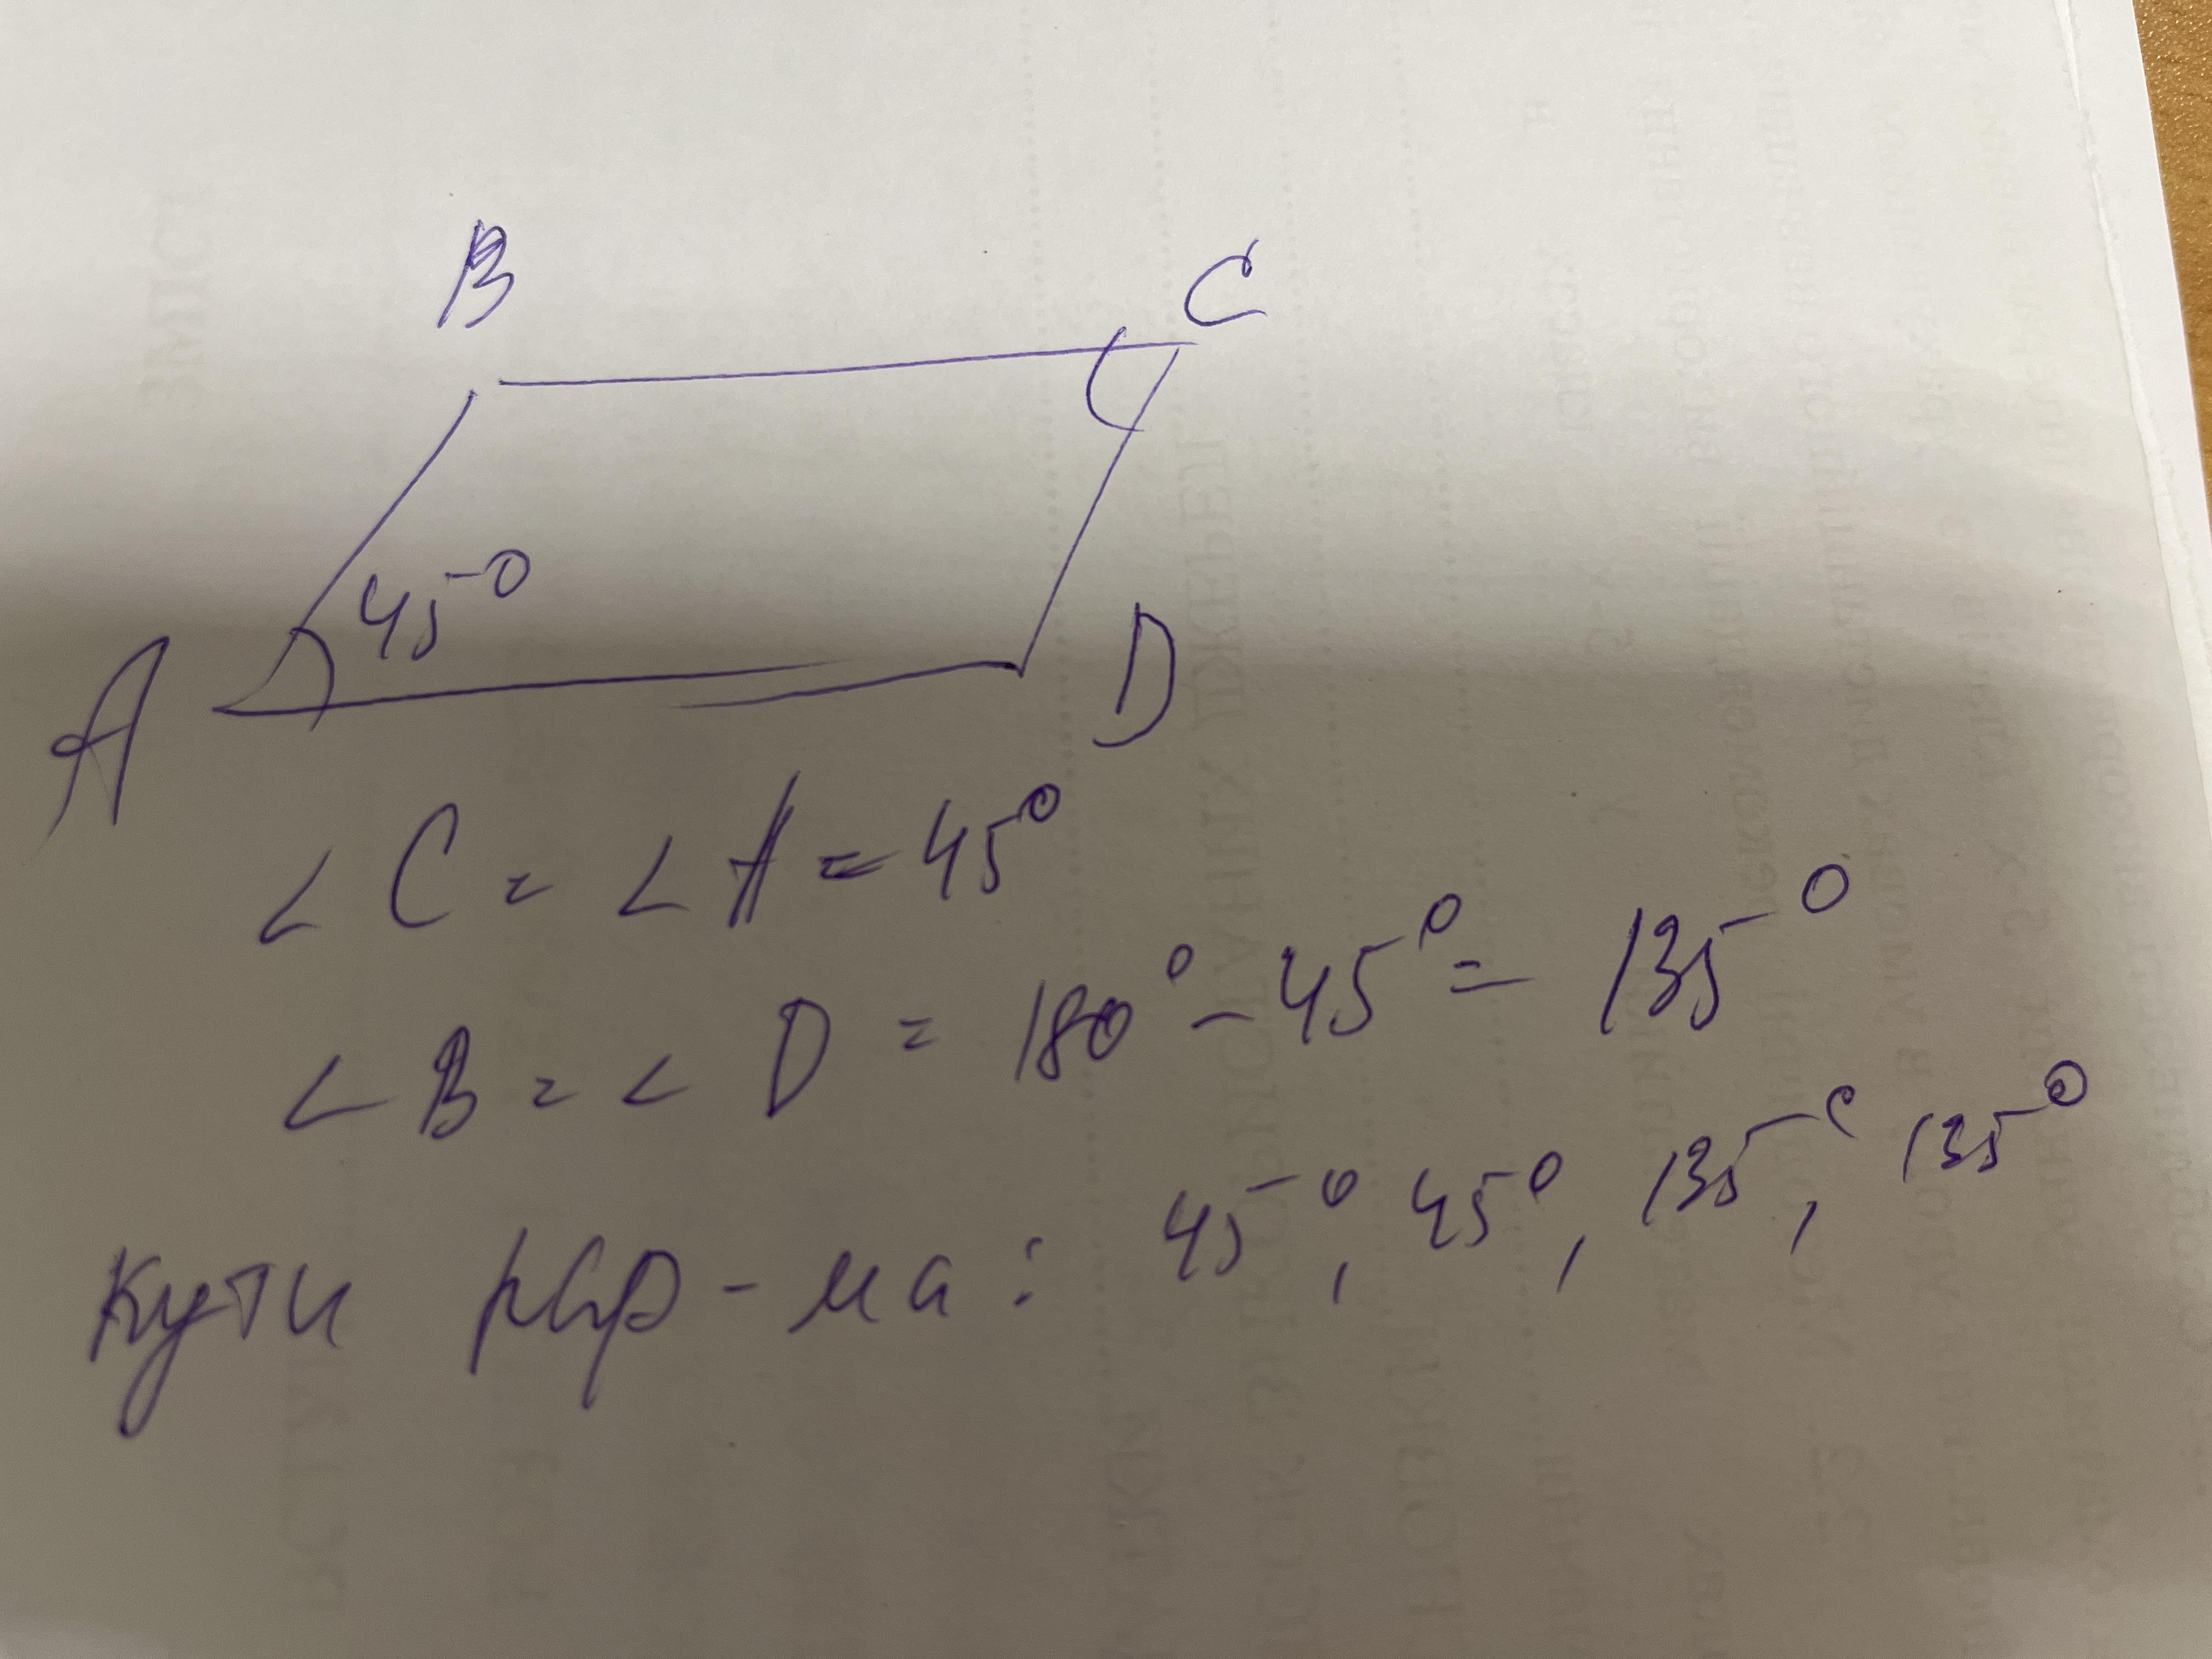 B
C
45°
A
D
∠ C = ∠ A = 45°
∠ B = ∠ D = 180° - 45° = 135°
Кути - ма: 45°, 45°, 135°, 135°